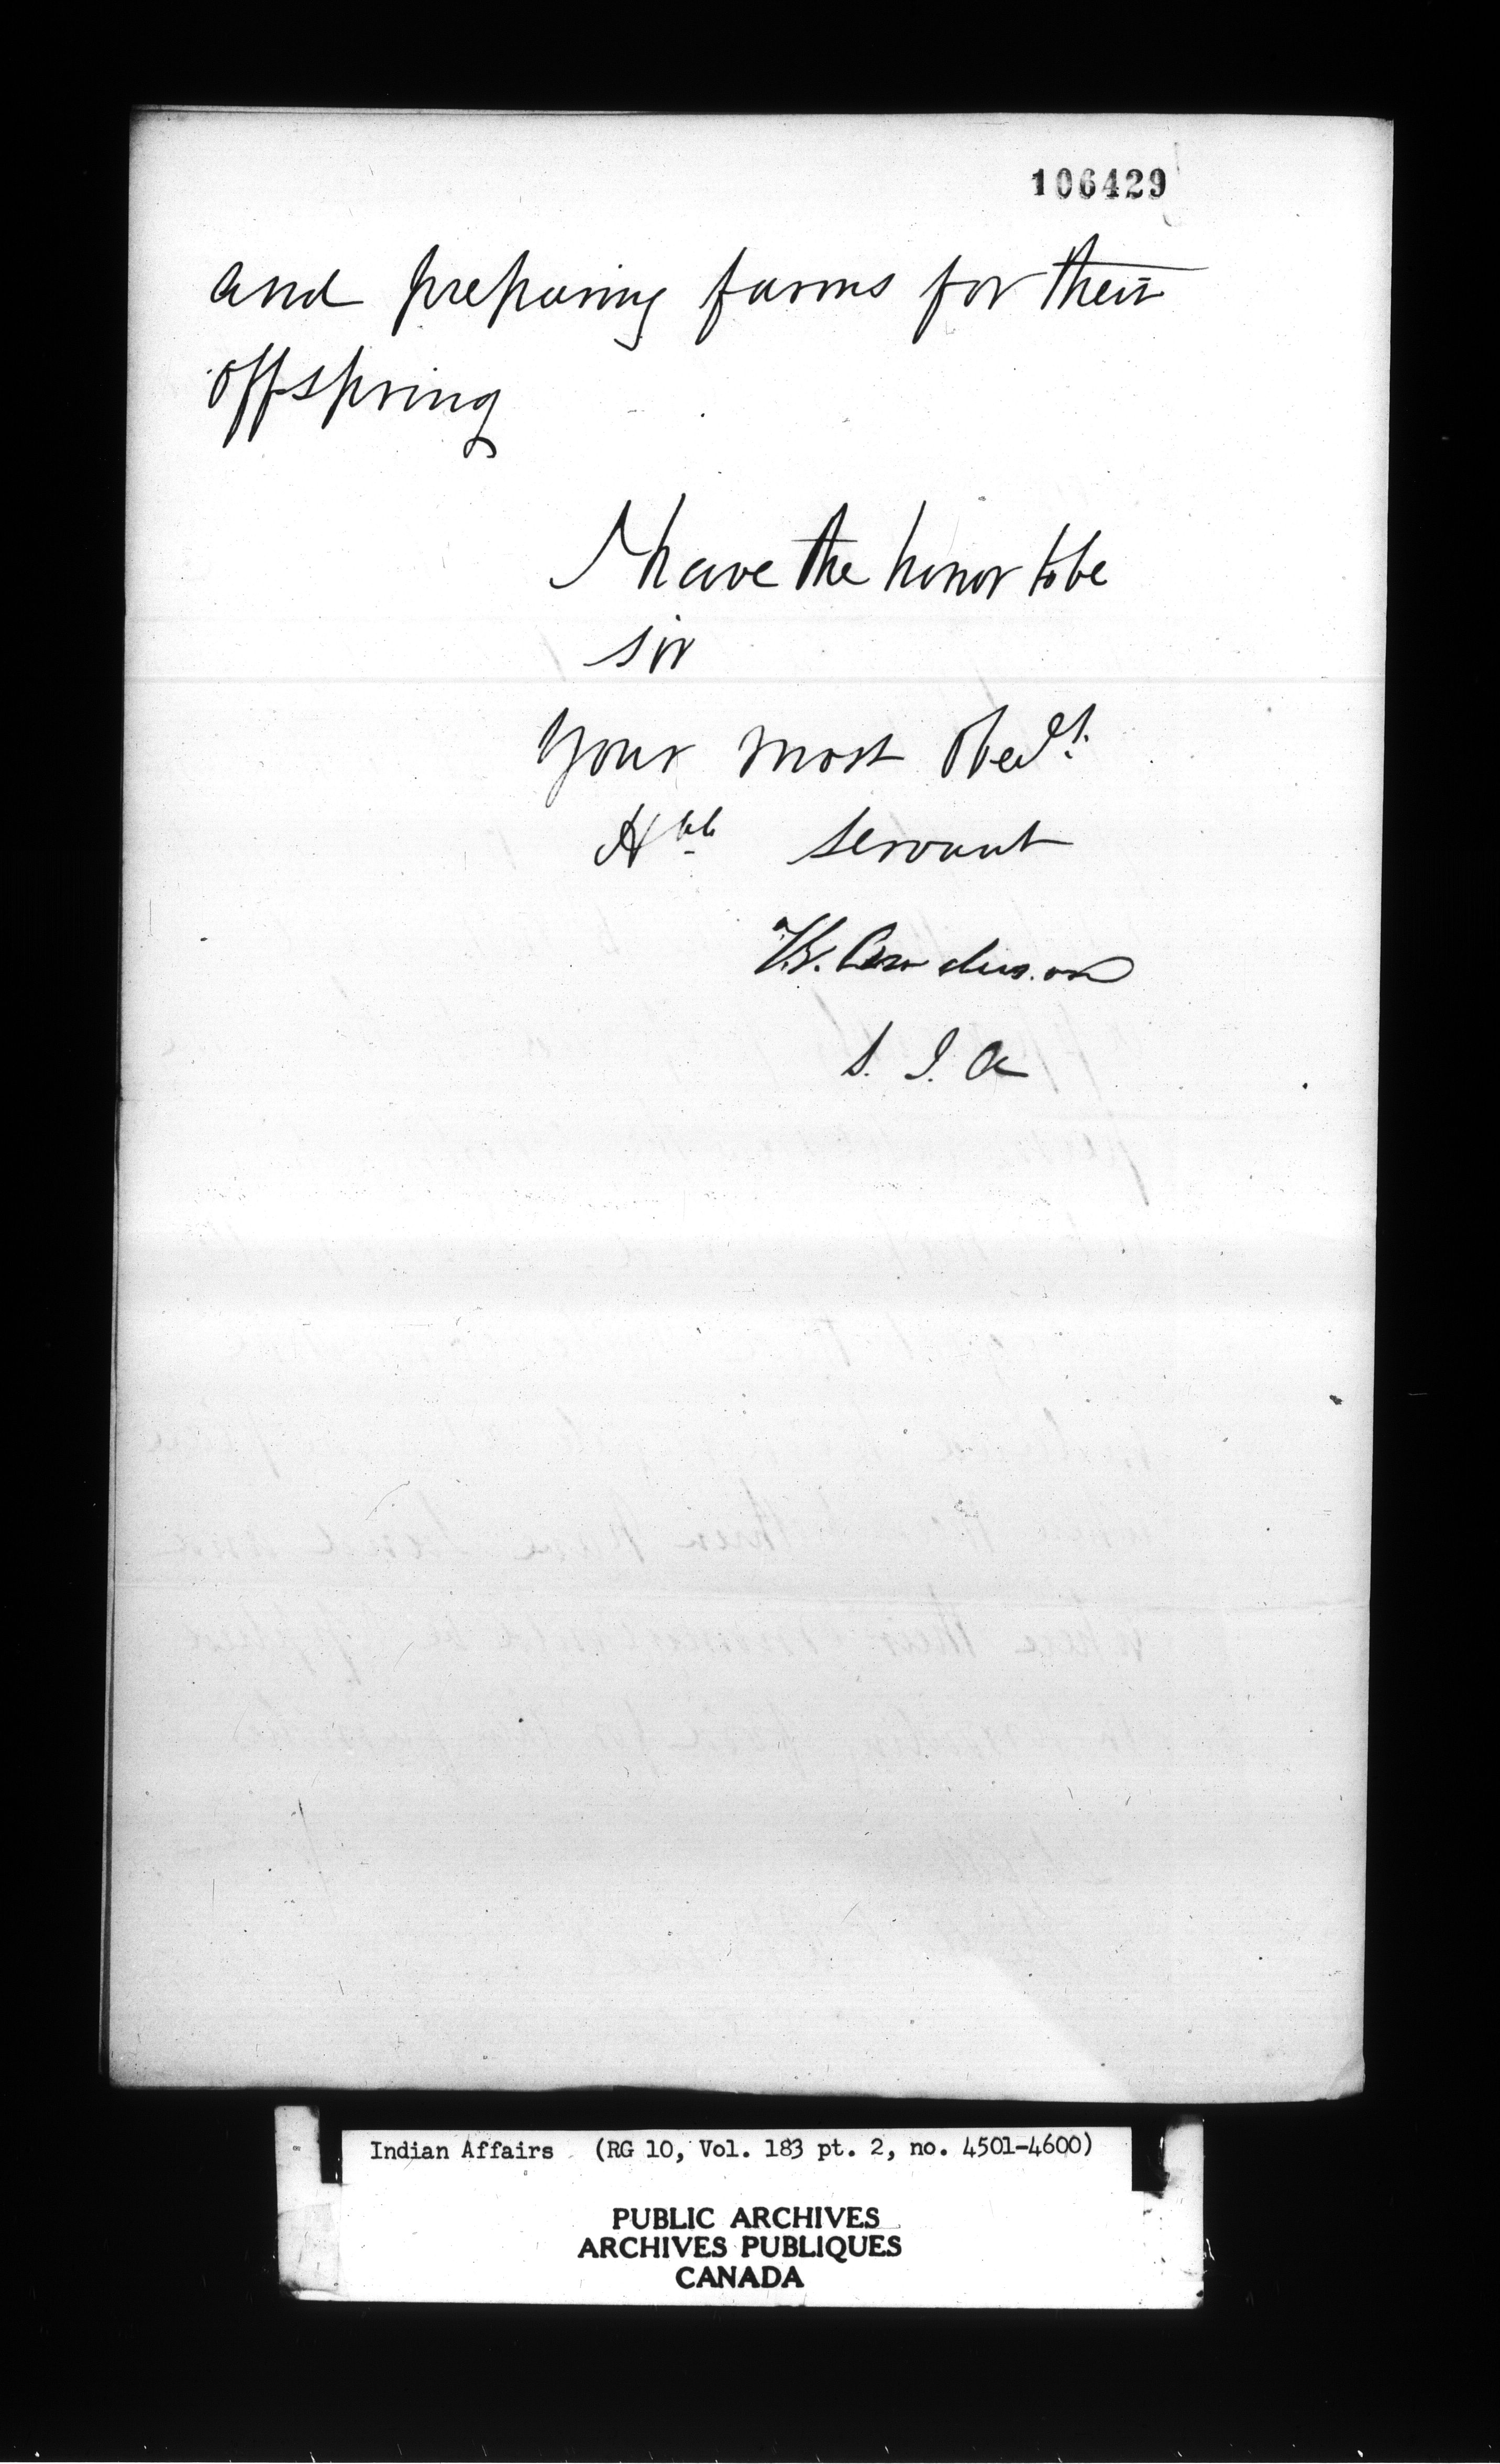 106429
and preparing farms for their
offspring
I have the honor to be
sir
your most Obedt.
Hble servant
T.G. Anderson
S. I. A
Indian Affairs (RG 10, Vol. 183 pt. 2, no. 4501-4600)
PUBLIC ARCHIVES
ARCHIVES PUBLIQUES
CANADA